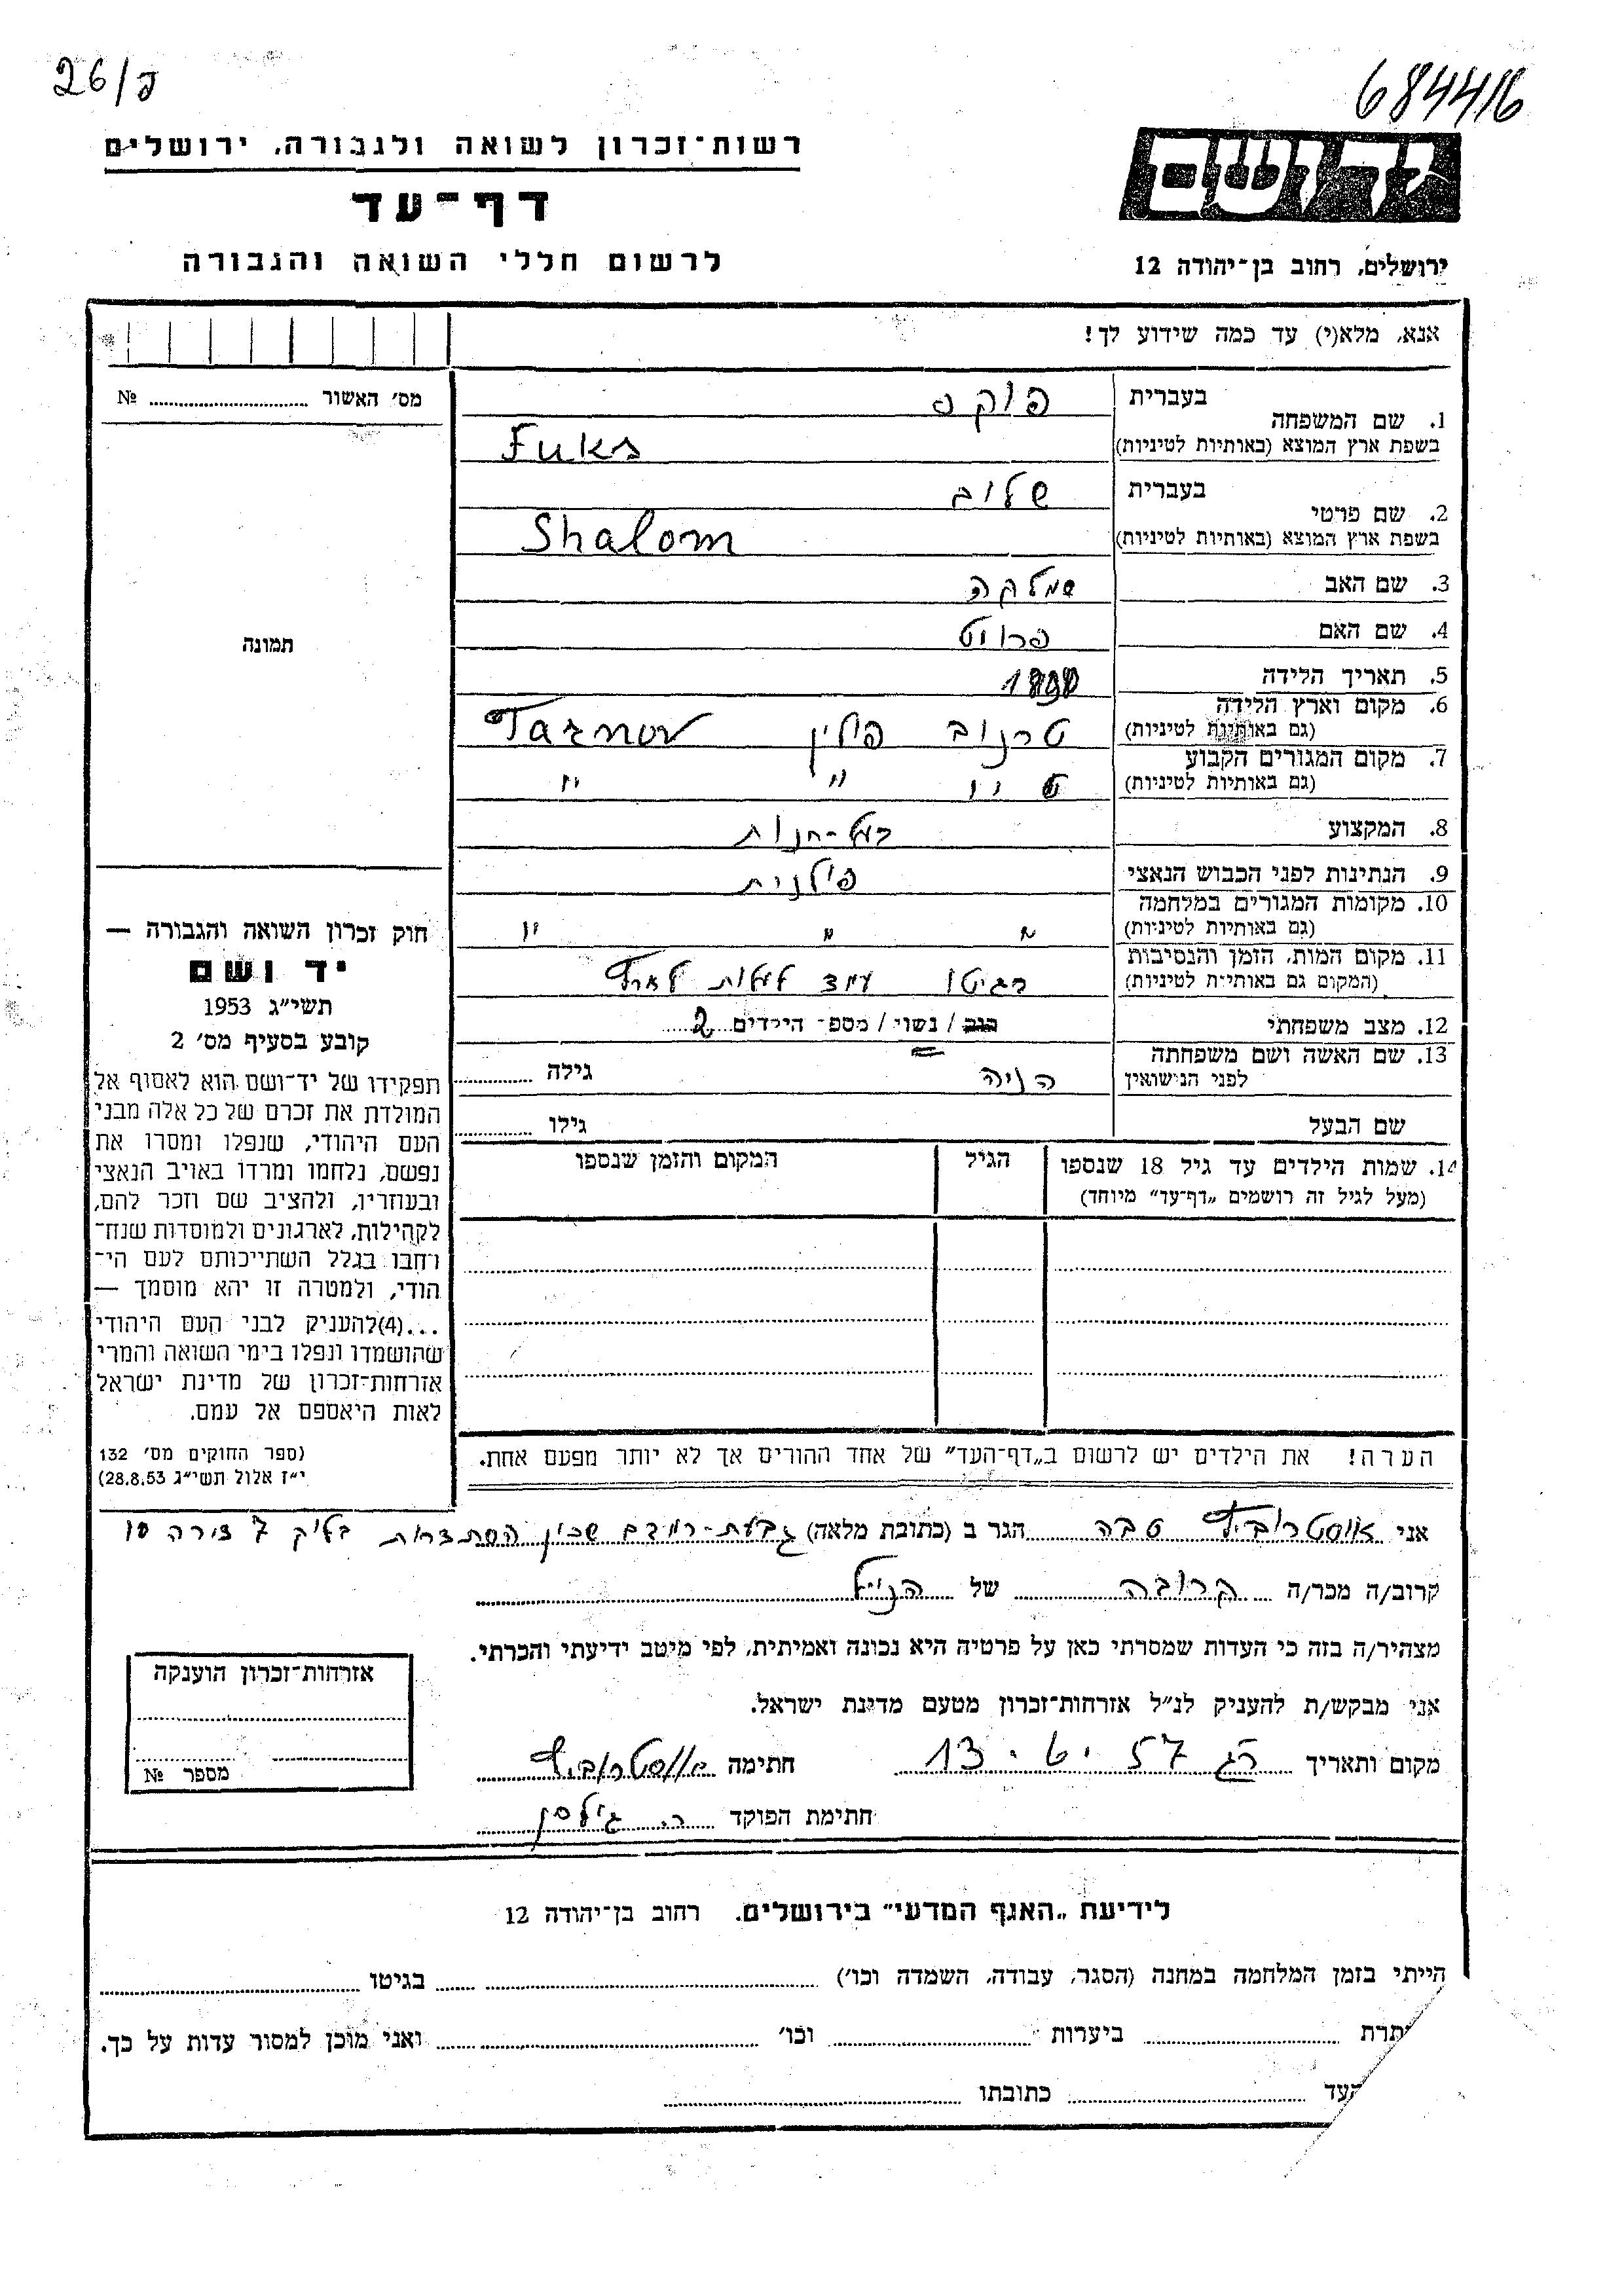 26/פ
684416
רשות־זכרון לשואה ולגבורה, ירושלים
דף־עד
לרשום חללי השואה והגבורה
יד ושם
ירושלים, רחוב בן־יהודה 12
אנא, מלא(י) עד כמה שידוע לך!
מס׳ האשור № 
1. שם המשפחה
בעברית פוקס
בשפת ארץ המוצא (באותיות לטיניות) Fuks
2. שם פרטי
בעברית שלום
בשפת ארץ המוצא (באותיות לטיניות) Shalom
3. שם האב שמלקה
4. שם האם פרומט
5. תאריך הלידה
6. מקום וארץ הלידה
(גם באותיות לטיניות) טרנוב פולין Tarnov
7. מקום המגורים הקבוע
(גם באותיות לטיניות) " " "
8. המקצוע בעל-חנות
9. הנתינות לפני הכבוש הנאצי פולנית
10. מקומות המגורים במלחמה
(גם באותיות לטיניות) " " "
11. מקום המות, הזמן והנסיבות
(המקום גם באותיות לטיניות) בגיטו
12. מצב משפחתי רוב / נשוי / מספר הילדים 2
13. שם האשה ושם משפחתה
לפני הנישואין הניה גילה
שם הבעל גילו
14. שמות הילדים עד גיל 18 שנספו
(מעל לגיל זה רושמים „דף־עד״ מיוחד)
הגיל
המקום והזמן שנספו
הערה! את הילדים יש לרשום ב„דף־העד״ של אחד ההורים אך לא יותר מפעם אחת.
תמונה
חוק זכרון השואה והגבורה —
יד ושם
תשי״ג 1953
קובע בסעיף מס׳ 2
תפקידו של יד־ושם הוא לאסוף אל
המולדת את זכרם של כל אלה מבני
העם היהודי, שנפלו ומסרו את
נפשם, נלחמו ומרדו באויב הנאצי
ובעוזריו, ולהציב שם וזכר להם,
לקהילות, לארגונים ולמוסדות שנח־
רחבו בגלל השתייכותם לעם הי־
הודי, ולמטרה זו יהא מוסמך —
...(4)להעניק לבני העם היהודי
שהושמדו ונפלו בימי השואה והמרי
אזרחות־זכרון של מדינת ישראל
לאות היאספם אל עמם.
(ספר החוקים מס׳ 132
י״ז אלול תשי״ג 28.8.53)
אני אוסטרוביץ טבה הגר ב (כתובת מלאה) גבעת-רמבם שכון הסתדרות בלוק 7 דירה 10
קרוב/ה מכר/ה קרובה של הנ״ל
מצהיר/ה בזה כי העדות שמסרתי כאן על פרטיה היא נכונה ואמיתית, לפי מיטב ידיעתי והכרתי.
אני מבקש/ת להעניק לנ״ל אזרחות־זכרון מטעם מדינת ישראל.
מקום ותאריך רג 13.6.57 חתימה אוסטרוביץ
חתימת הפוקד
אזרחות־זכרון הוענקה
מספר №
לידיעת „האגף המדעי״ בירושלים. רחוב בן־יהודה 12
הייתי בזמן המלחמה במחנה (הסגר, עבודה, השמדה וכו׳) בגיטו
תרת ביערות וכו׳ ואני מוכן למסור עדות על כך.
העד כתובתו